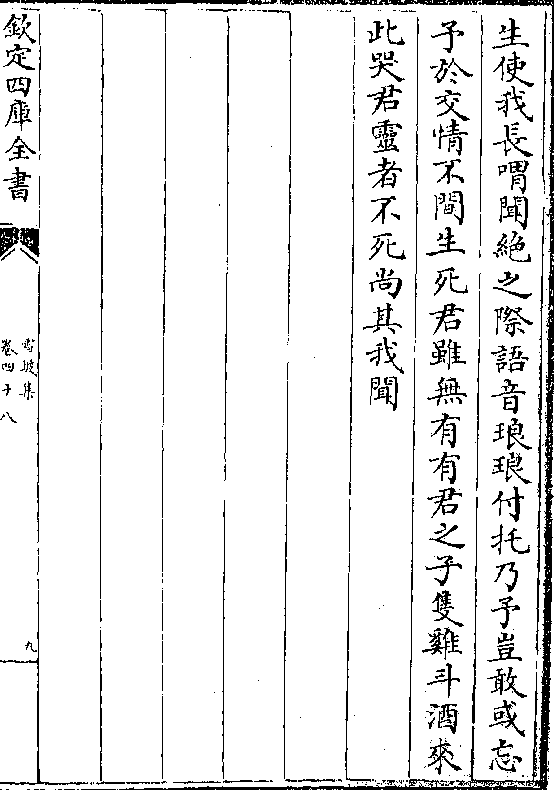 生使我長喟聞絶之際語音琅琅付托乃予豈敢或忘
予於交情不間生死君雖無有有君之子隻雞斗酒來
此哭君靈者不死尚其我聞
欽定四庫全書
雪坡集
卷四十八
九